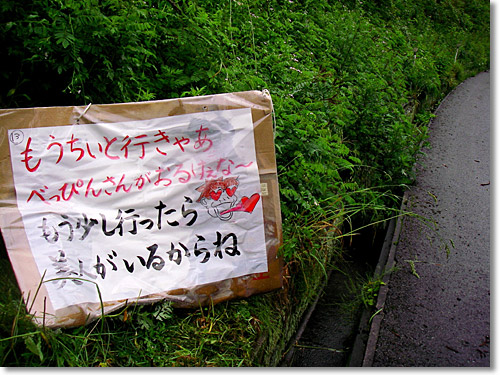 13
もうちいと行きゃあ
べっぴんさんがおるけぇな〜
もう少し行ったら
美人がいるからね